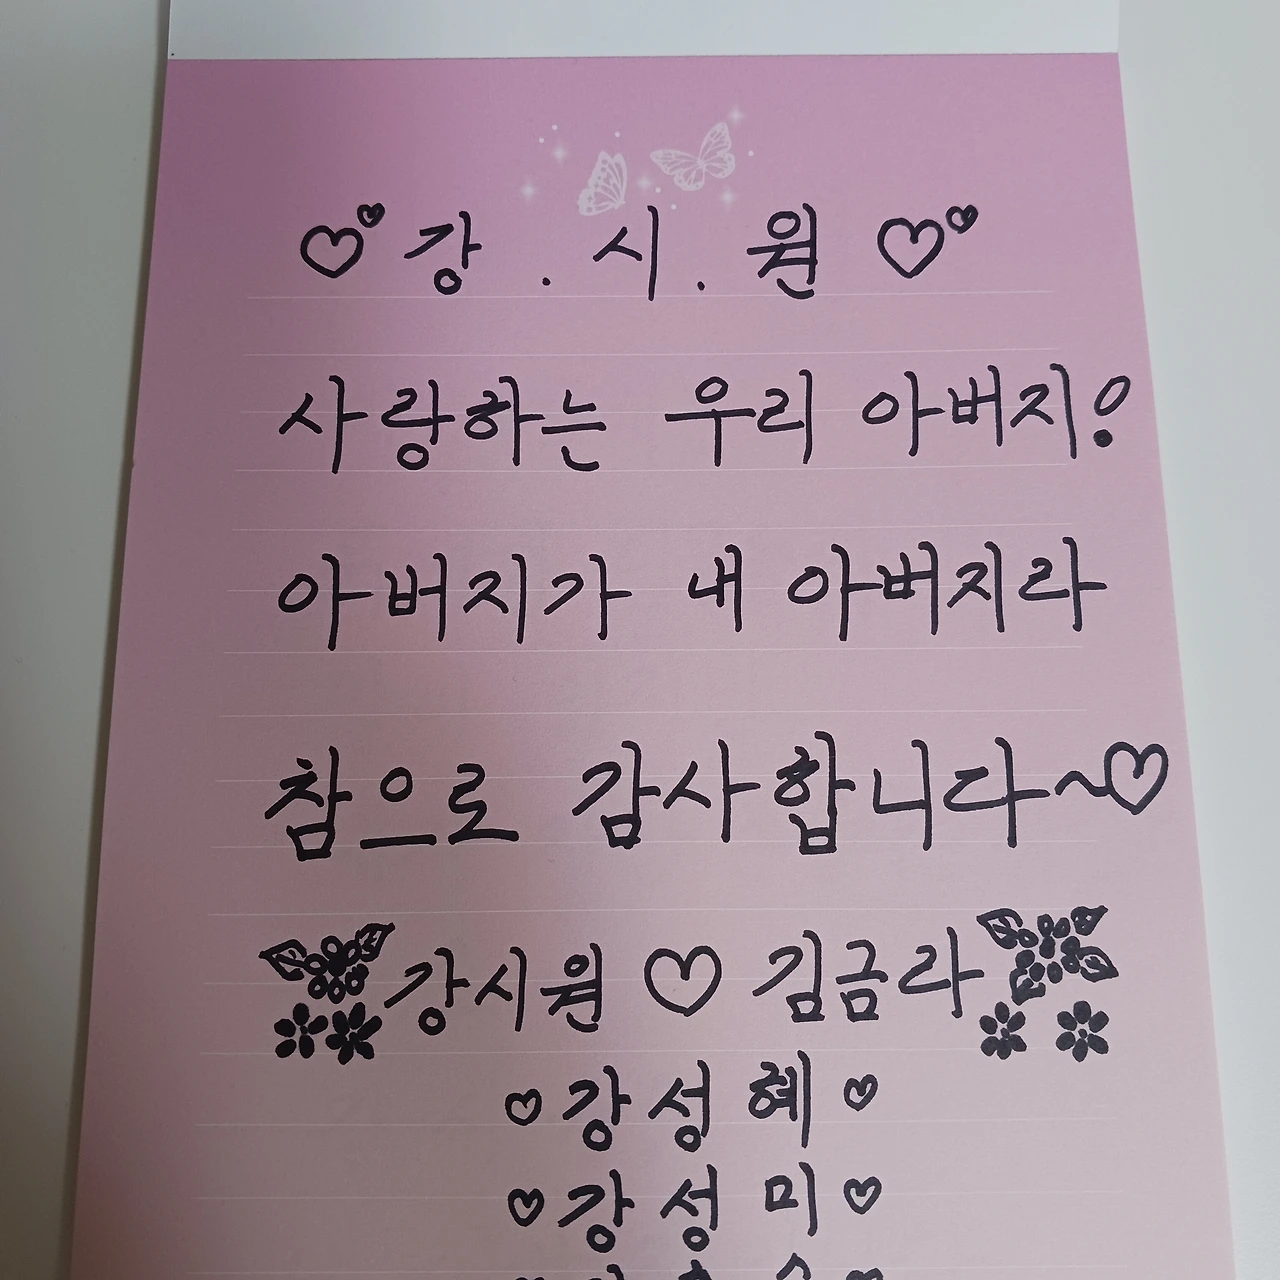 ♡♡강.시.원♡♡
사랑하는 우리 아버지!
아버지가 내 아버지라
참으로 감사합니다~♡
강시원 ♡ 김금라
♡강성혜♡
♡강성미♡